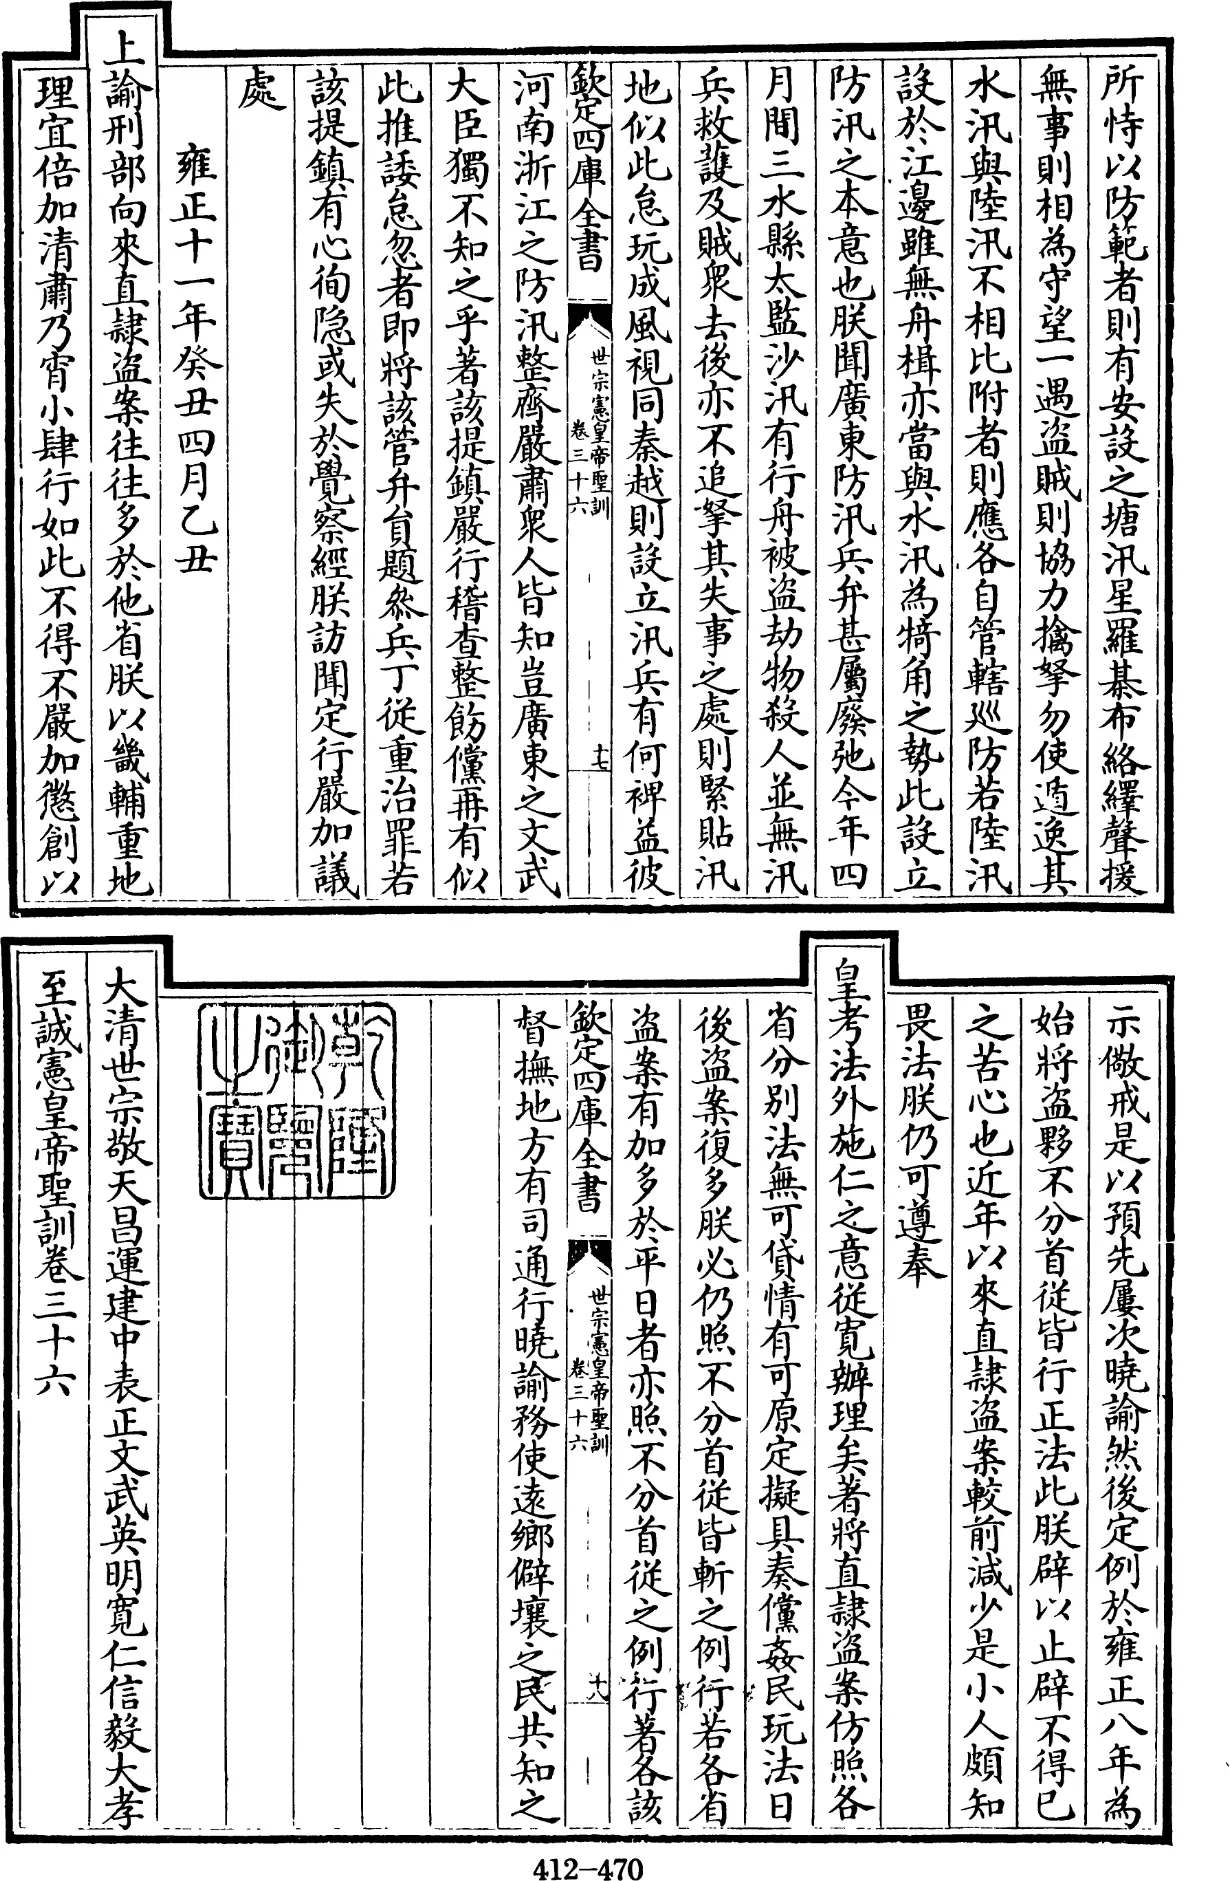 所恃以防範者則有安設之塘汛星羅棊布絡繹聲援
無事則相為守望一遇盜賊則協力擒拏勿使遁逸其
水汛與陸汛不相比附者則應各自管轄廵防若陸汛
設於江邊雖無舟楫亦當與水汛為犄角之勢此設立
防汛之本意也朕聞廣東防汛兵弁甚屬廢弛今年四
月間三水縣太監沙汛有行舟被盜劫物殺人並無汛
兵救護及賊衆去後亦不追拏其失事之處則緊貼汛
地似此怠玩成風視同秦越則設立汛兵有何裨益彼
欽定四庫全書
世宗憲皇帝聖訓
卷三十六
十七
河南浙江之防汛整齊嚴肅衆人皆知豈廣東之文武
大臣獨不知之乎著該提鎮嚴行稽查整飭儻再有似
此推諉怠忽者即將該管弁員題叅兵丁從重治罪若
該提鎮有心徇隱或失於覺察經朕訪聞定行嚴加議
處
雍正十一年癸丑四月乙丑
上諭刑部向來直隷盜案往往多於他省朕以畿輔重地
理宜倍加清肅乃宵小肆行如此不得不嚴加懲創以
示儆戒是以預先屢次曉諭然後定例於雍正八年為
始將盜夥不分首從皆行正法此朕辟以止辟不得已
之苦心也近年以來直隷盜案較前減少是小人頗知
畏法朕仍可遵奉
皇考法外施仁之意從寛辦理矣著將直隷盜案仿照各
省分别法無可貸情有可原定擬具奏儻姦民玩法日
後盜案復多朕必仍照不分首從皆斬之例行若各省
盜案有加多於平日者亦照不分首從之例行著各該
欽定四庫全書
世宗憲皇帝聖訓
卷三十六
十八
督撫地方有司通行曉諭務使遠鄉僻壤之民共知之
乾隆
御覽
之寶
大清世宗敬天昌運建中表正文武英明寛仁信毅大孝
至誠憲皇帝聖訓卷三十六
412-470